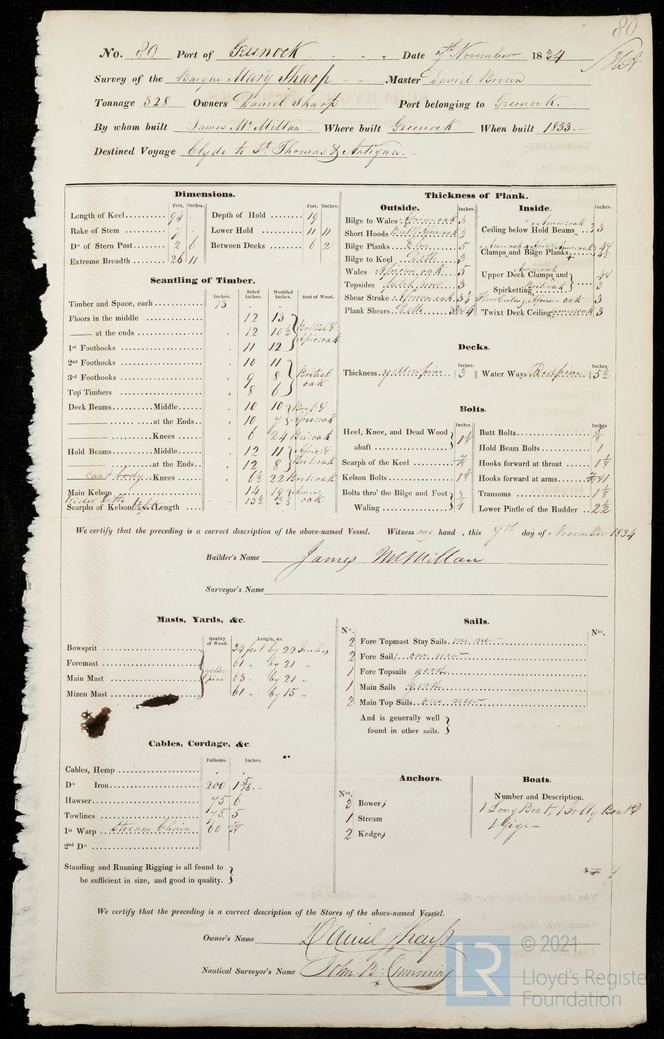 80
No. 80 Port of Greenock Date 7th November 1834
Survey of the Barque Mary Sharp Master David Brown
Tonnage 328 Owners Daniel Sharp Port belonging to Greenock.
By whom built James McMillan Where built Greenock When built 1833.
Destined Voyage Clyde to St Thomas & Antigua.
Dimensions.
Feet. Inches. Feet. Inches.
Length of Keel 94 Depth of Hold 19
Rake of Stem Lower Hold 11 11
Do of Stern Post 2 6 Between Decks 6 2
Extreme Breadth 26 11
Scantling of Timber.
Inches. Sided Inches. Moulded Inches. Sort of Wood.
Timber and Space, each
Floors in the middle 12 13
at the ends 12 10½
British &
1st Foothooks 11 12
2nd Foothooks 10 11
3rd Foothooks 9 8
British oak
Top Timbers 8 6
Deck Beams Middle 10 10
at the Ends 10 7
Knees 6 24
Hold Beams Middle 12 11
at the Ends 12 8
Knees 6½ 22
Main Kelson 14 19
Scarphs of Kelson Length
Thickness of Plank.
Outside.
Inches.
Bilge to Wales 3
Short Hoods 3
Bilge Planks Elm 5
Bilge to Keel 3
Wales African oak 5
Topsides 3
Shear Strake African oak 3½
Plank Shears
Inside.
Inches.
Ceiling below Hold Beams 3
Clamps and Bilge Planks
Upper Deck Clamps and
Spirketting 3
'Twixt Deck Ceiling 3
Decks.
Thickness yellow pine 3 Water Ways Red pine 5½
Bolts.
Inches. Inches.
Heel, Knee, and Dead Wood abaft 1⅛ Butt Bolts ⅝
Hold Beam Bolts 1
Scarph of the Keel ⅞ Hooks forward at throat
Kelson Bolts 1⅛ Hooks forward at arms
Bolts thro' the Bilge and Foot Waling ¾ Transoms
Lower Pintle of the Rudder 2½
We certify that the preceding is a correct description of the above-named Vessel. Witness my hand, this 7th day of November 1834
Builder's Name James McMillan
Surveyor's Name
Masts, Yards, &c.
Quality of Wood. Length, &c.
Bowsprit 24 feet by 22 Inches
Foremast 61 " by 21 "
yellow pine
Main Mast 63 " by 21 "
Mizen Mast 61 " by 15 "
Sails.
No. No.
2 Fore Topmast Stay Sails one new
2 Fore Sail one new
1 Fore Topsails good
1 Main Sails good
2 Main Top Sails one new
And is generally well
found in other sails.
Cables, Cordage, &c.
Fathoms. Inches.
Cables, Hemp
Do Iron 200
Hawser 75 6
Towlines 75 5
1st Warp Stream Chain 60
2nd Do
Standing and Running Rigging is all found to
be sufficient in size, and good in quality.
Anchors.
No.
2 Bowers
1 Stream
2 Kedges
Boats.
Number and Description.
1 Long Boat, 1 Jolly Boat &
1 Gig
We certify that the preceding is a correct description of the Stores of the above-named Vessel.
Owner's Name Daniel Sharp
Nautical Surveyor's Name John B. Cumming
LR © 2021
Lloyd's Register
Foundation